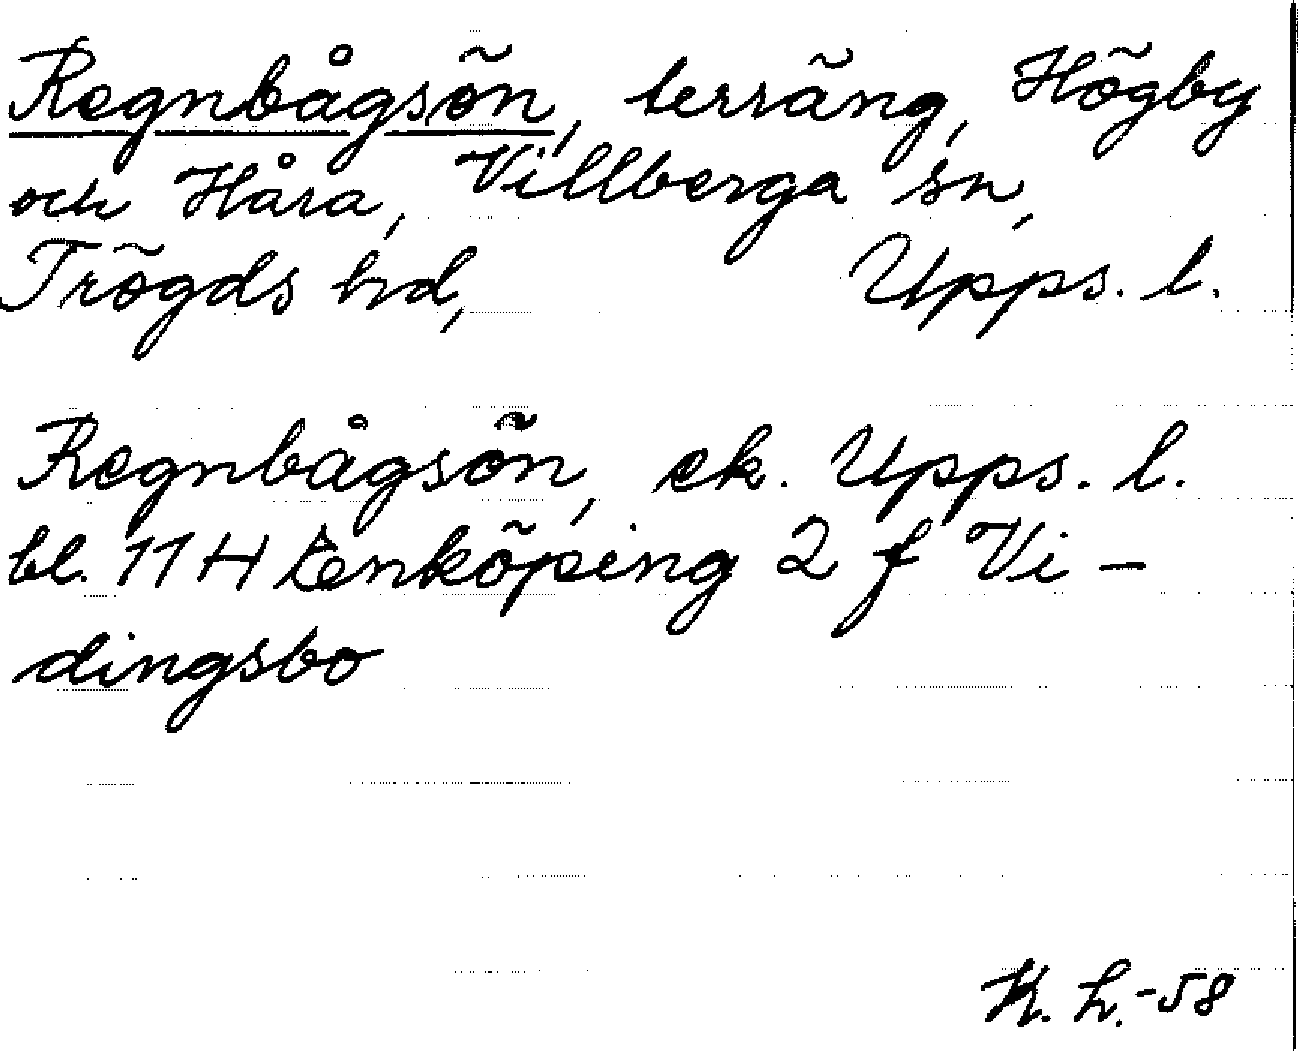 Regnbågsön, terräng, Högby
och Håra, Villberga sn,
Trögds hd, Upps. l.
Regnbågsön, ek. Upps. l.
bl. 11 H Enköping 2 f Vi-
dingsbo
K. L. -58